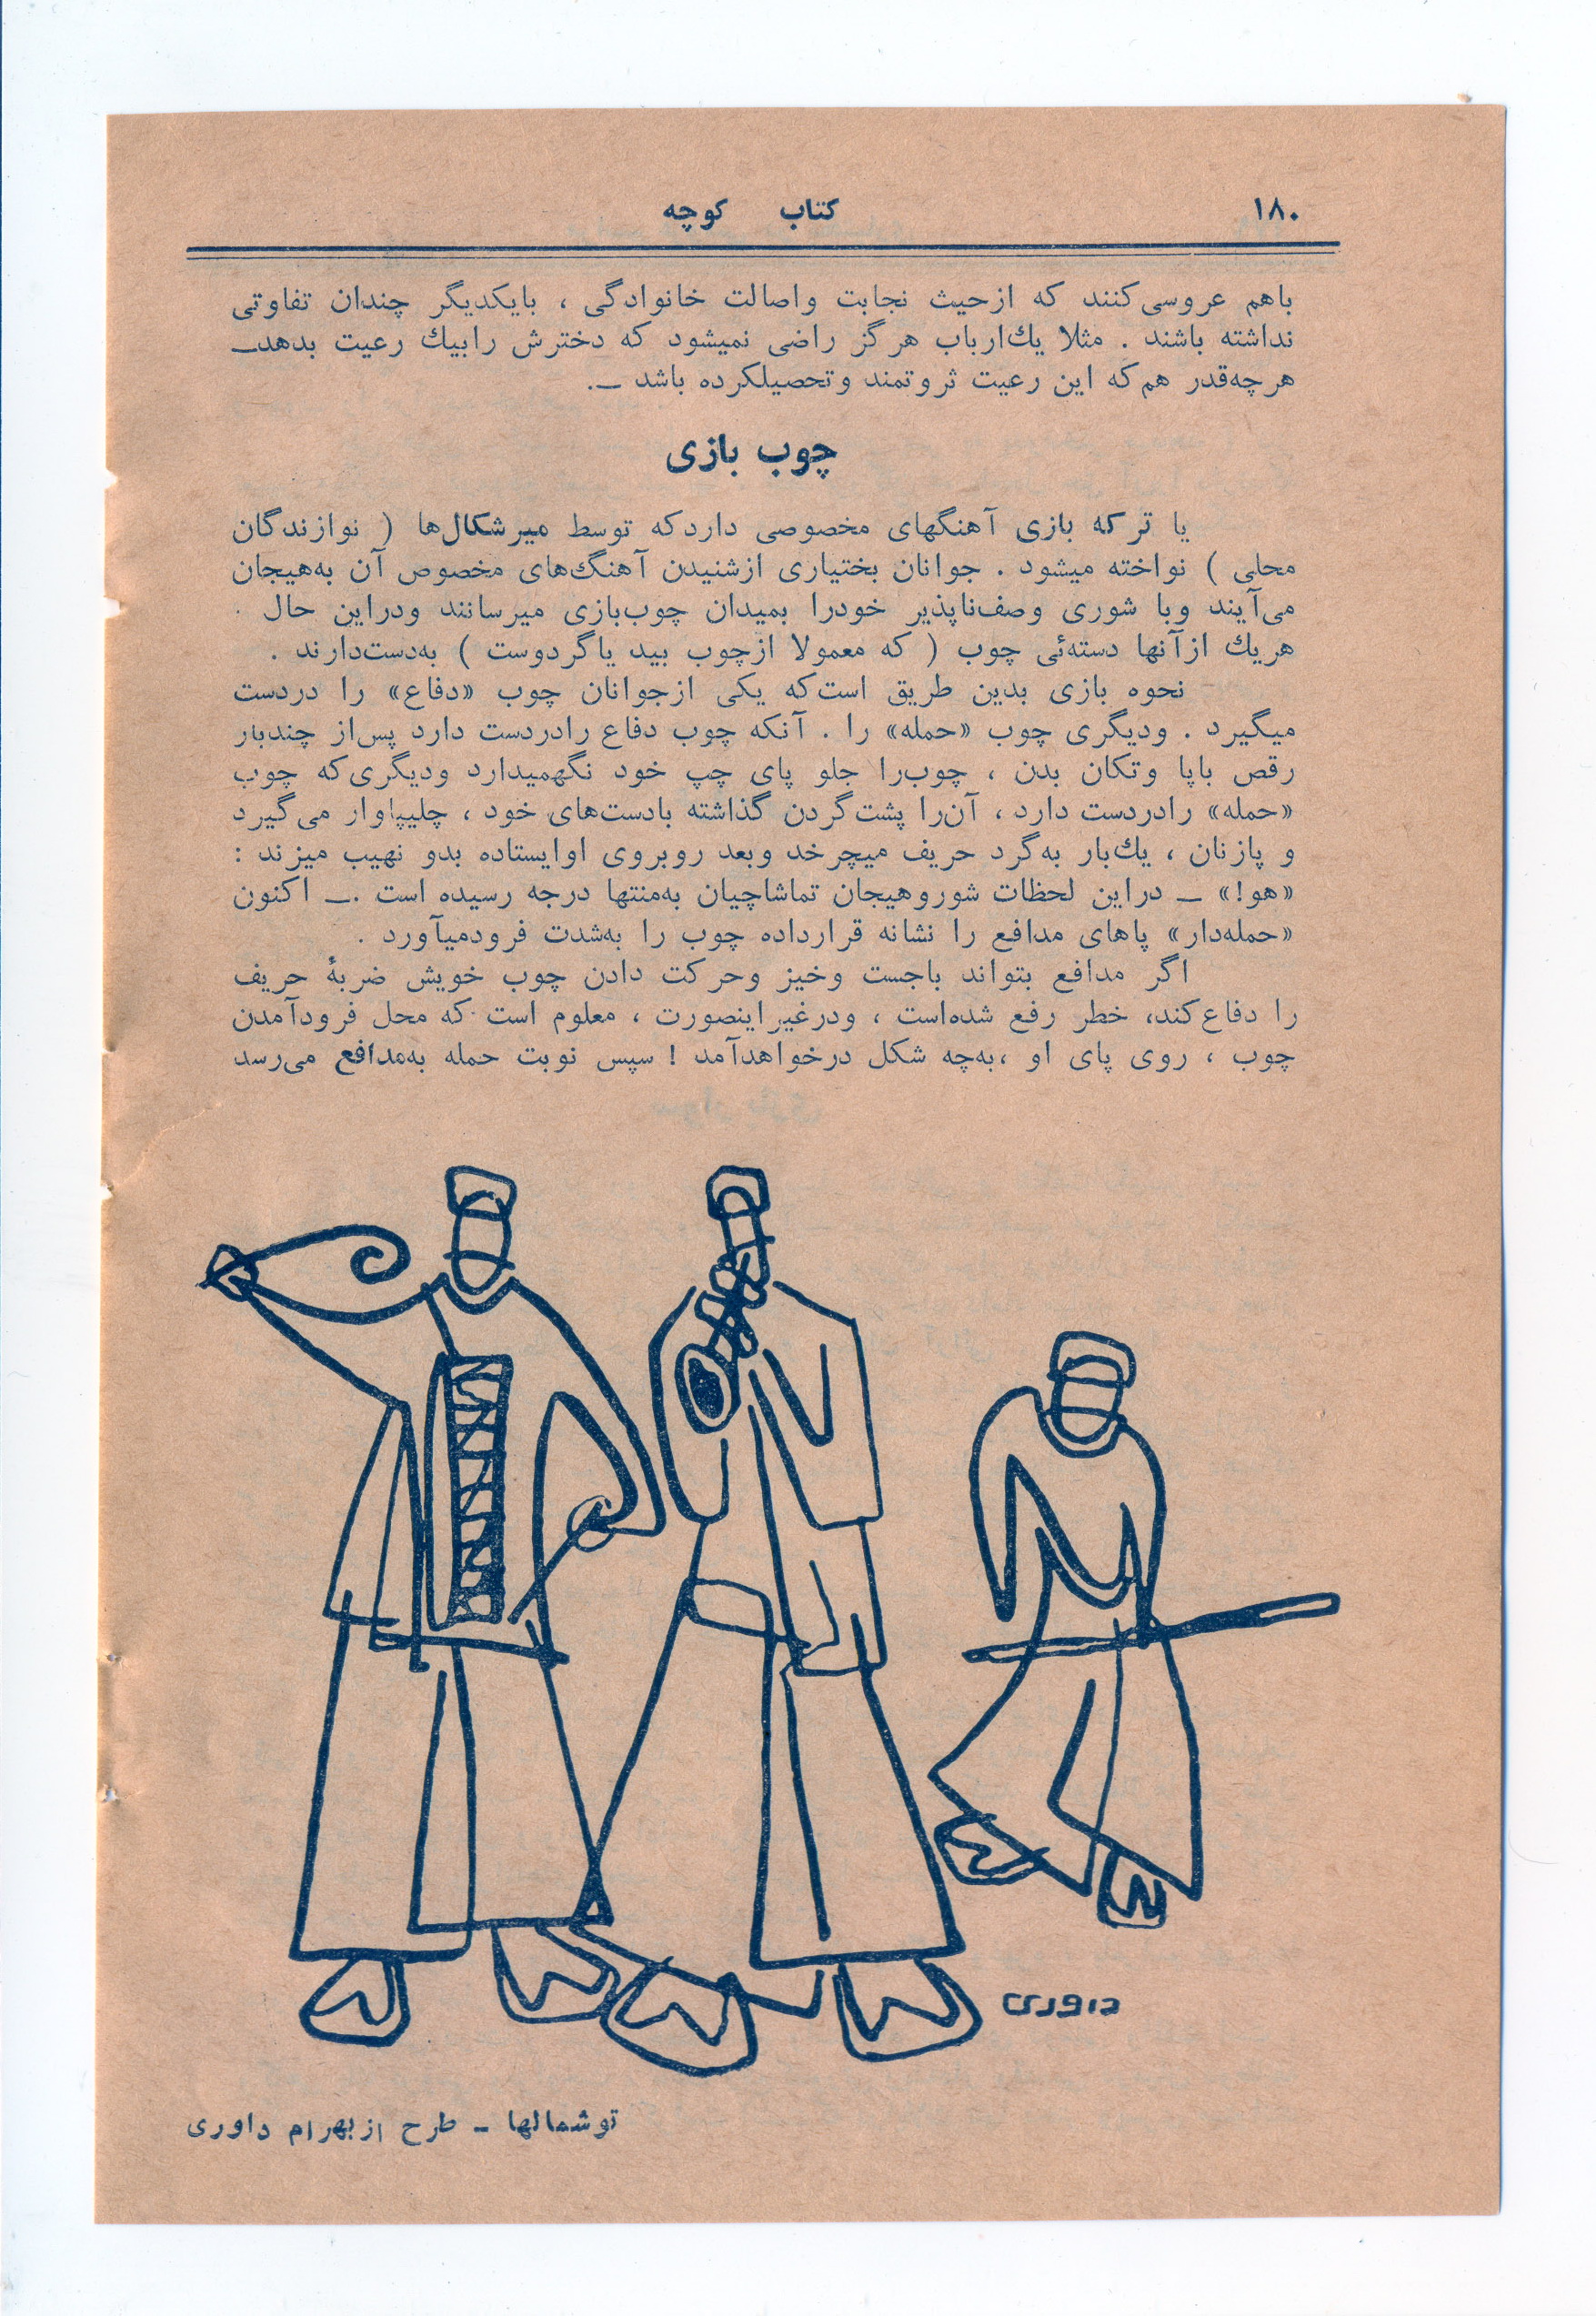 ۱۸۰
کتاب کوچه
باهم عروسی‌کنند که ازحیث نجابت واصالت خانوادگی ، بایکدیگر چندان تفاوتی
نداشته باشند . مثلا یك‌ارباب هرگز راضی نمیشود که دخترش رابیك رعیت بدهدـ
هرچه‌قدر هم‌که این رعیت ثروتمند وتحصیلکرده باشد ـ.
چوب بازی
یا ترکه بازی آهنگهای مخصوصی داردکه توسط میرشکال‌ها ( نوازندگان
محلی ) نواخته میشود . جوانان بختیاری ازشنیدن آهنگ‌های مخصوص آن به‌هیجان
می‌آیند وبا شوری وصف‌ناپذیر خودرا بمیدان چوب‌بازی میرسانند ودراین حال
هریك ازآنها دسته‌ئی چوب ( که معمولا ازچوب بید یاگردوست ) به‌دست‌دارند .
نحوه بازی بدین طریق است‌که یکی ازجوانان چوب «دفاع» را دردست
میگیرد . ودیگری چوب «حمله» را . آنکه چوب دفاع رادردست دارد پس‌از چندبار
رقص باپا وتکان بدن ، چوب‌را جلو پای چپ خود نگهمیدارد ودیگری‌که چوب
«حمله» رادردست دارد ، آن‌را پشت‌گردن گذاشته بادست‌های خود ، چلیپاوار می‌گیرد
و پازنان ، یك‌بار به‌گرد حریف میچرخد وبعد روبروی اوایستاده بدو نهیب میزند :
«هو!» ـ دراین لحظات شوروهیجان تماشاچیان به‌منتها درجه رسیده است .ـ اکنون
«حمله‌دار» پاهای مدافع را نشانه قرارداده چوب را به‌شدت فرودمیآورد .
اگر مدافع بتواند باجست وخیز وحرکت دادن چوب خویش ضربهٔ حریف
را دفاع‌کند، خطر رفع شده‌است ، ودرغیراینصورت ، معلوم است که محل فرودآمدن
چوب ، روی پای او ،به‌چه شکل درخواهدآمد ! سپس نوبت حمله به‌مدافع می‌رسد
داوری
توشمالها ـ طرح ازبهرام داوری